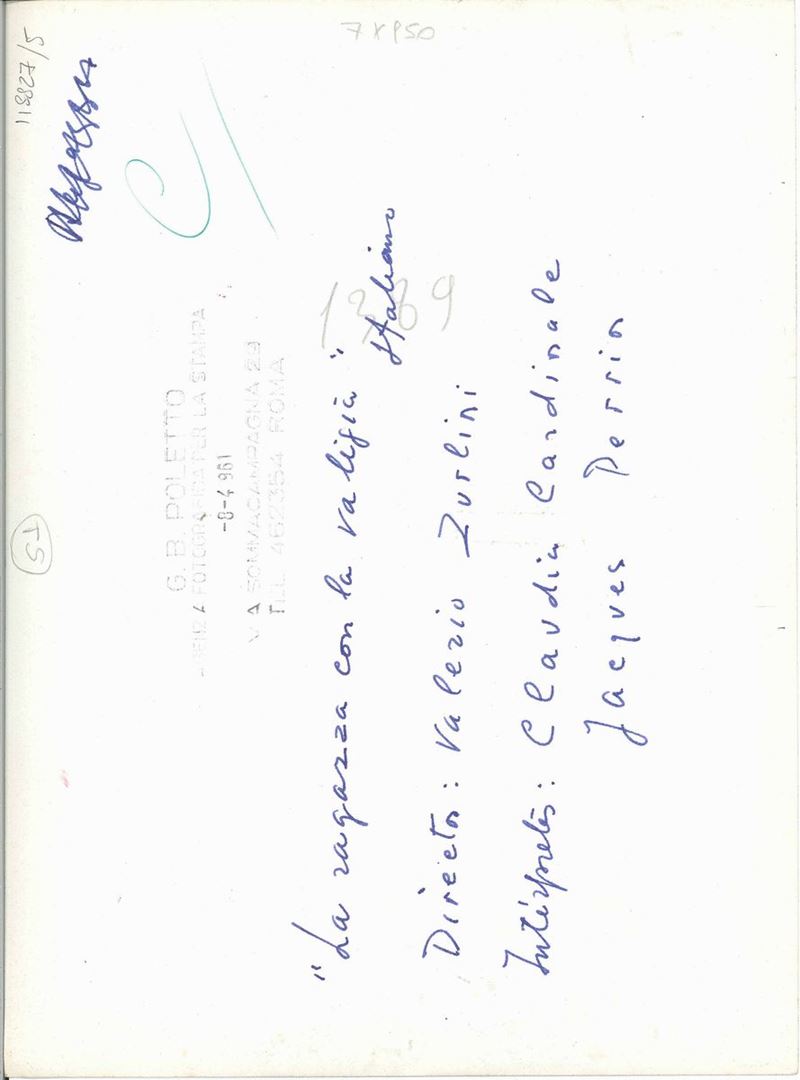 119827/5
7 x 950
ST
G. B. POLETTO
AGENZIA FOTOGRAFICA PER LA STAMPA
-8-4 961
VIA SOMMACAMPAGNA 29
TEL. 462354 ROMA
1389
"La ragazza con la valigia"
Italiano
Director: Valerio Zurlini
Intérpretes: Claudia Cardinale
Jacques Perrin